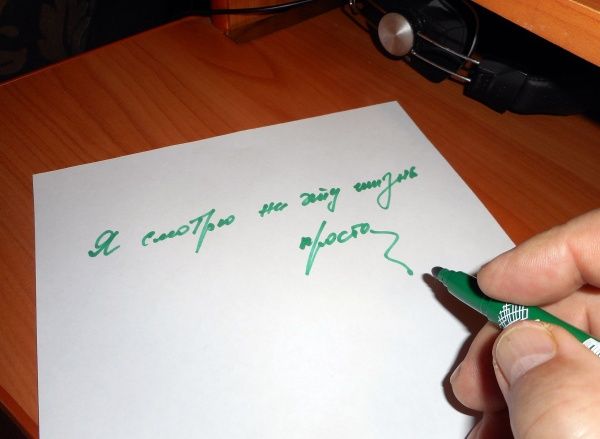 Я смотрю на эту жизнь
просто